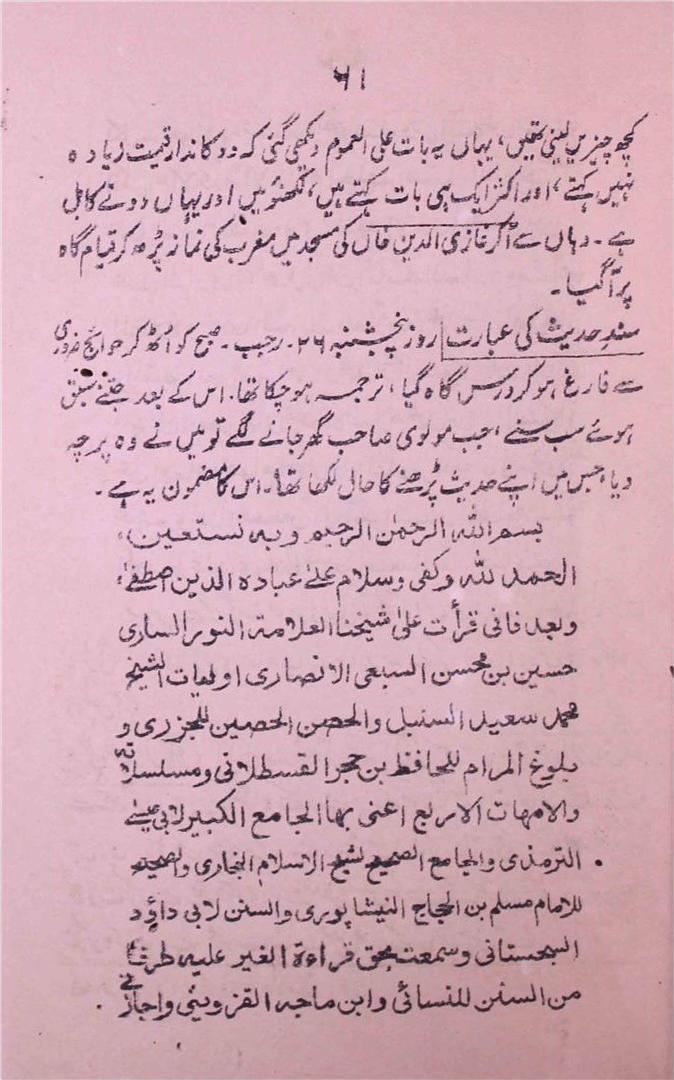 ۶۱
کچھ چیزیں لینی تھیں، یہاں یہ بات علی العموم دیکھی گئی کہ دوکاندار قیمت زیادہ
نہیں کہتے، اور اکثر ایک ہی بات کہتے ہیں، لکھنؤ میں اور یہاں دونے کا بل
ہے۔ وہاں سے آکر غازی الدین خاں کی مسجد میں مغرب کی نماز پڑھ کر قیام گاہ
پر آگیا۔
سند حدیث کی عبارت روز پنجشنبہ ۲۶۔ رجب۔ صبح کو اُٹھ کر حوائج ضروری
سے فارغ ہو کر درس گاہ گیا، ترجمہ ہو چکا تھا۔ اس کے بعد جتنے سبق
ہوئے سب سنے، جب مولوی صاحب گھر جانے لگے تو میں نے وہ پرچہ
دیا، جس میں اپنے حدیث پڑھنے کا حال لکھا تھا۔ اس کا مضمون یہ ہے۔
بسم اللہ الرحمٰن الرحیم وبہ نستعین،
الحمد للہ وکفی وسلام علےٰ عبادہ الذین اصطفےٰ،
وبعد فانی قرأت علیٰ شیخنا العلامۃ النور الساری
حسین بن محسن السبعی الانصاری اولیات الشیخ
محمد سعید السنبل والحصن الحصین للجزری و
بلوغ المرام للحافظ بن حجر القسطلانی ومسلسلاتہ
والامہات الاربع اعنی بہا الجامع الکبیر لابی عیسےٰ
الترمذی والجامع الصحیح لشیخ الاسلام البخاری والصحیح
للامام مسلم بن الحجاج النیشاپوری والسنن لابی داؤد
السجستانی وسمعت بحق قراءۃ الغیر علیہ طرفا
من السنن للنسائی وابن ماجہ القزوینی واجازنی